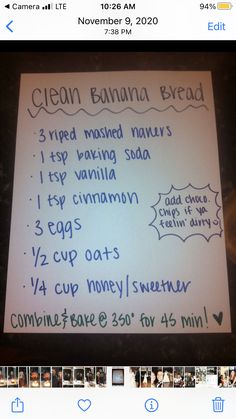 Camera LTE 10:26 AM 94%
November 9, 2020
7:38 PM
Edit
Clean Banana Bread
· 3 riped mashed naners
· 1 tsp baking soda
· 1 tsp vanilla
· 1 tsp cinnamon
· 3 eggs
· 1/2 cup oats
· 1/4 cup honey/sweetner
add choco.
chips if ya
feelin' dirty
Combine & Bake @ 350° for 45 min! ♥